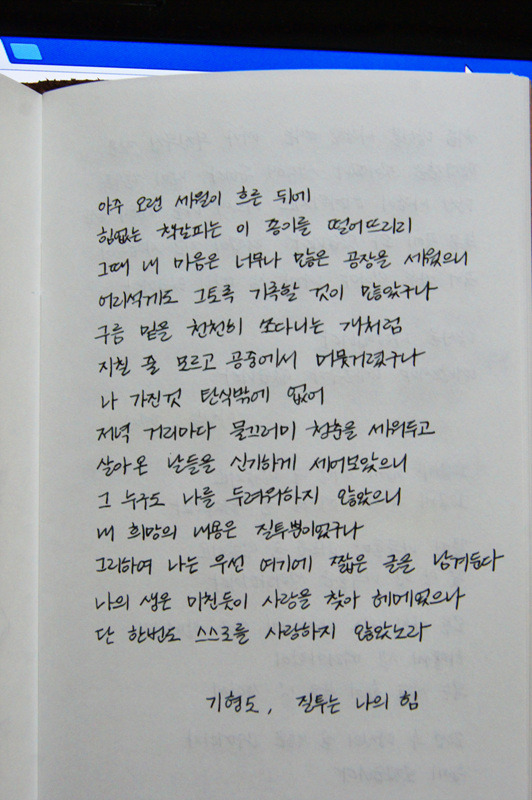 아주 오랜 세월이 흐른 뒤에
힘없는 책갈피는 이 종이를 떨어뜨리리
그때 내 마음은 너무나 많은 공장을 세웠으니
어리석게도 그토록 기록할 것이 많았구나
구름 밑을 천천히 쏘다니는 개처럼
지칠 줄 모르고 공중에서 머뭇거렸구나
나 가진것 탄식밖에 없어
저녁 거리마다 물끄러미 청춘을 세워두고
살아온 날들을 신기하게 세어보았으니
그 누구도 나를 두려워하지 않았으니
내 희망의 내용은 질투뿐이었구나
그리하여 나는 우선 여기에 짧은 글을 남겨둔다
나의 생은 미친듯이 사랑을 찾아 헤메었으나
단 한번도 스스로를 사랑하지 않았노라
기형도, 질투는 나의 힘